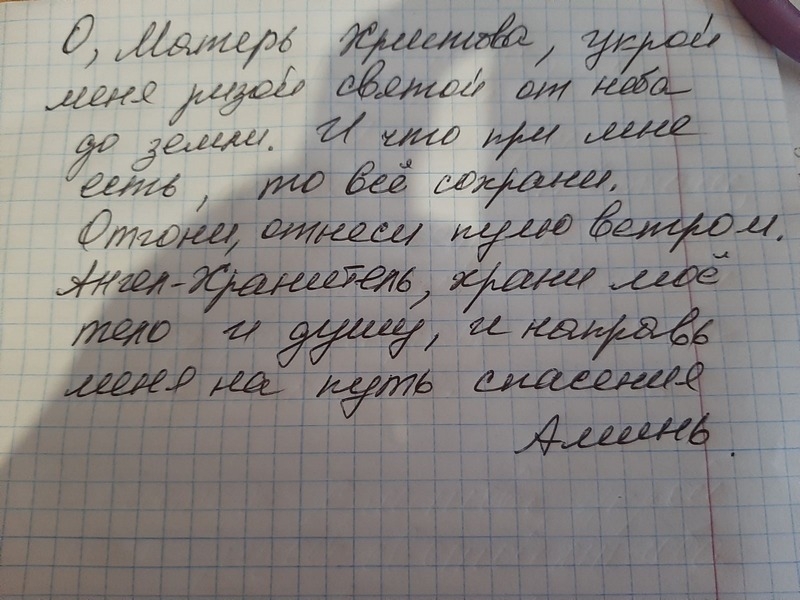 О, Матерь Христова, укрой
меня ризой святой от неба
до земли. И что при мне
есть, то всё сохрани.
Отгони, отнеси пулю ветром.
Ангел-Хранитель, храни моё
тело и душу, и направь
меня на путь спасения
Аминь.